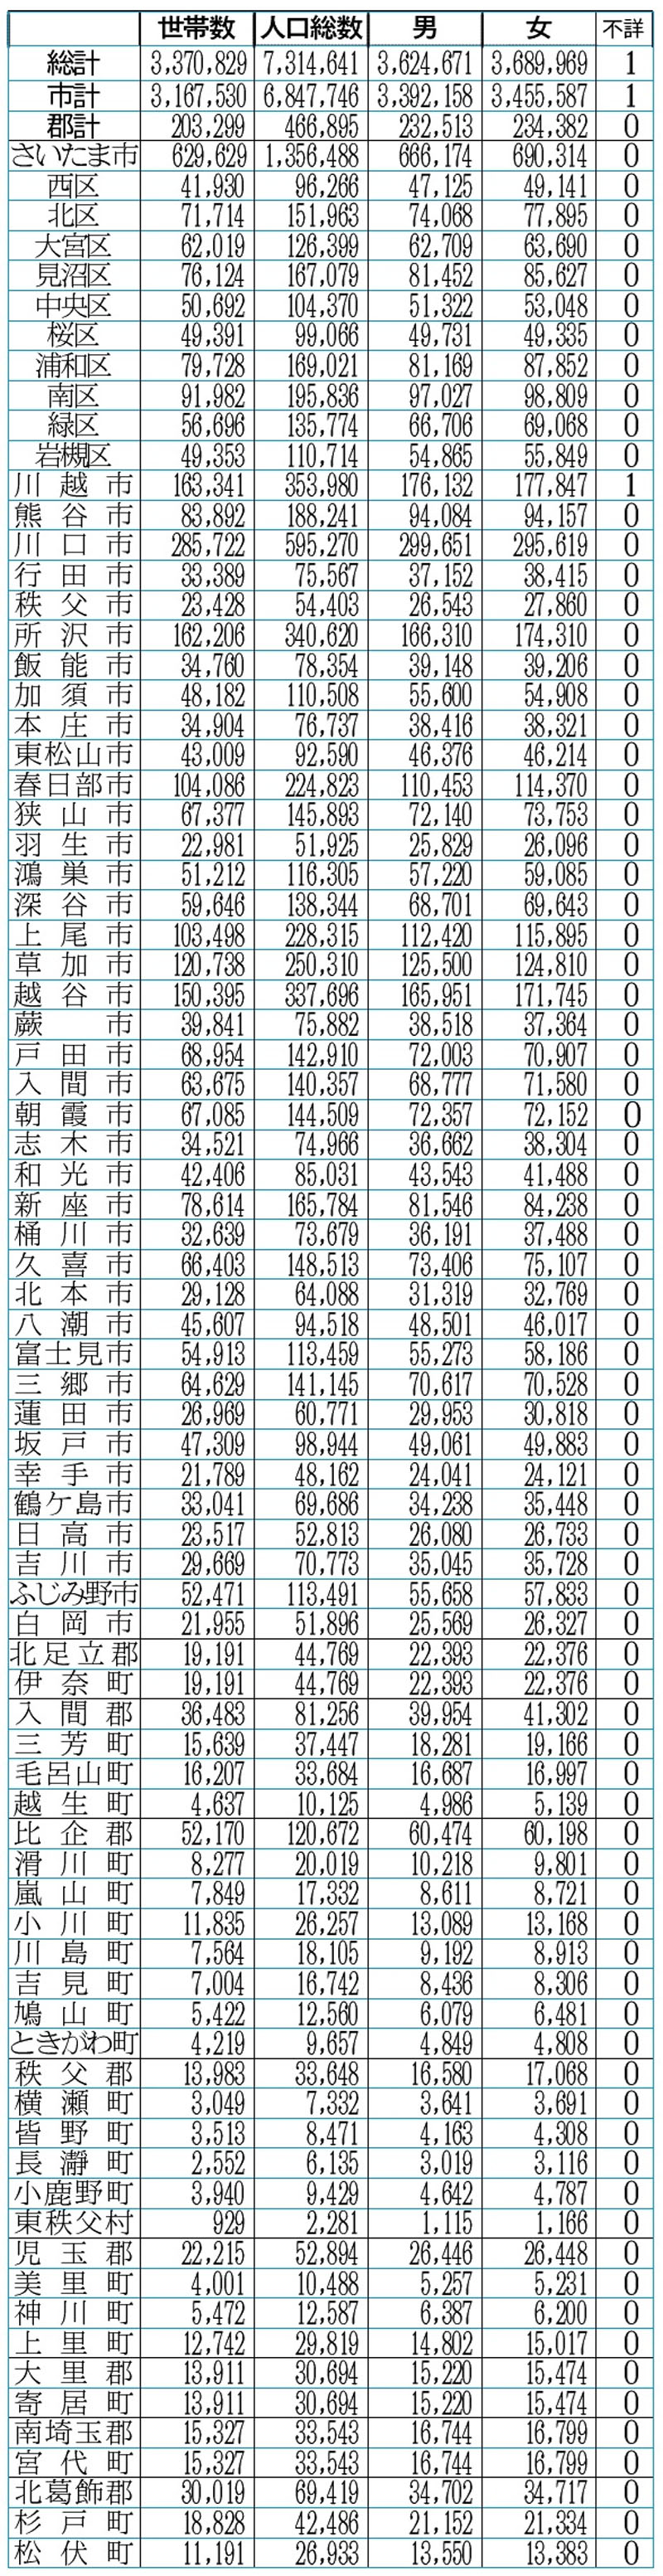 世帯数 人口総数 男 女 不詳
総計 3,370,829 7,314,641 3,624,671 3,689,969 1
市計 3,167,530 6,847,746 3,392,158 3,455,587 1
郡計 203,299 466,895 232,513 234,382 0
さいたま市 629,629 1,356,488 666,174 690,314 0
西区 41,930 96,266 47,125 49,141 0
北区 71,714 151,963 74,068 77,895 0
大宮区 62,019 126,399 62,709 63,690 0
見沼区 76,124 167,079 81,452 85,627 0
中央区 50,692 104,370 51,322 53,048 0
桜区 49,391 99,066 49,731 49,335 0
浦和区 79,728 169,021 81,169 87,852 0
南区 91,982 195,836 97,027 98,809 0
緑区 56,696 135,774 66,706 69,068 0
岩槻区 49,353 110,714 54,865 55,849 0
川越市 163,341 353,980 176,132 177,847 1
熊谷市 83,892 188,241 94,084 94,157 0
川口市 285,722 595,270 299,651 295,619 0
行田市 33,389 75,567 37,152 38,415 0
秩父市 23,428 54,403 26,543 27,860 0
所沢市 162,206 340,620 166,310 174,310 0
飯能市 34,760 78,354 39,148 39,206 0
加須市 48,182 110,508 55,600 54,908 0
本庄市 34,904 76,737 38,416 38,321 0
東松山市 43,009 92,590 46,376 46,214 0
春日部市 104,086 224,823 110,453 114,370 0
狭山市 67,377 145,893 72,140 73,753 0
羽生市 22,981 51,925 25,829 26,096 0
鴻巣市 51,212 116,305 57,220 59,085 0
深谷市 59,646 138,344 68,701 69,643 0
上尾市 103,498 228,315 112,420 115,895 0
草加市 120,738 250,310 125,500 124,810 0
越谷市 150,395 337,696 165,951 171,745 0
蕨市 39,841 75,882 38,518 37,364 0
戸田市 68,954 142,910 72,003 70,907 0
入間市 63,675 140,357 68,777 71,580 0
朝霞市 67,085 144,509 72,357 72,152 0
志木市 34,521 74,966 36,662 38,304 0
和光市 42,406 85,031 43,543 41,488 0
新座市 78,614 165,784 81,546 84,238 0
桶川市 32,639 73,679 36,191 37,488 0
久喜市 66,403 148,513 73,406 75,107 0
北本市 29,128 64,088 31,319 32,769 0
八潮市 45,607 94,518 48,501 46,017 0
富士見市 54,913 113,459 55,273 58,186 0
三郷市 64,629 141,145 70,617 70,528 0
蓮田市 26,969 60,771 29,953 30,818 0
坂戸市 47,309 98,944 49,061 49,883 0
幸手市 21,789 48,162 24,041 24,121 0
鶴ケ島市 33,041 69,686 34,238 35,448 0
日高市 23,517 52,813 26,080 26,733 0
吉川市 29,669 70,773 35,045 35,728 0
ふじみ野市 52,471 113,491 55,658 57,833 0
白岡市 21,955 51,896 25,569 26,327 0
北足立郡 19,191 44,769 22,393 22,376 0
伊奈町 19,191 44,769 22,393 22,376 0
入間郡 36,483 81,256 39,954 41,302 0
三芳町 15,639 37,447 18,281 19,166 0
毛呂山町 16,207 33,684 16,687 16,997 0
越生町 4,637 10,125 4,986 5,139 0
比企郡 52,170 120,672 60,474 60,198 0
滑川町 8,277 20,019 10,218 9,801 0
嵐山町 7,849 17,332 8,611 8,721 0
小川町 11,835 26,257 13,089 13,168 0
川島町 7,564 18,105 9,192 8,913 0
吉見町 7,004 16,742 8,436 8,306 0
鳩山町 5,422 12,560 6,079 6,481 0
ときがわ町 4,219 9,657 4,849 4,808 0
秩父郡 13,983 33,648 16,580 17,068 0
横瀬町 3,049 7,332 3,641 3,691 0
皆野町 3,513 8,471 4,163 4,308 0
長瀞町 2,552 6,135 3,019 3,116 0
小鹿野町 3,940 9,429 4,642 4,787 0
東秩父村 929 2,281 1,115 1,166 0
児玉郡 22,215 52,894 26,446 26,448 0
美里町 4,001 10,488 5,257 5,231 0
神川町 5,472 12,587 6,387 6,200 0
上里町 12,742 29,819 14,802 15,017 0
大里郡 13,911 30,694 15,220 15,474 0
寄居町 13,911 30,694 15,220 15,474 0
南埼玉郡 15,327 33,543 16,744 16,799 0
宮代町 15,327 33,543 16,744 16,799 0
北葛飾郡 30,019 69,419 34,702 34,717 0
杉戸町 18,828 42,486 21,152 21,334 0
松伏町 11,191 26,933 13,550 13,383 0